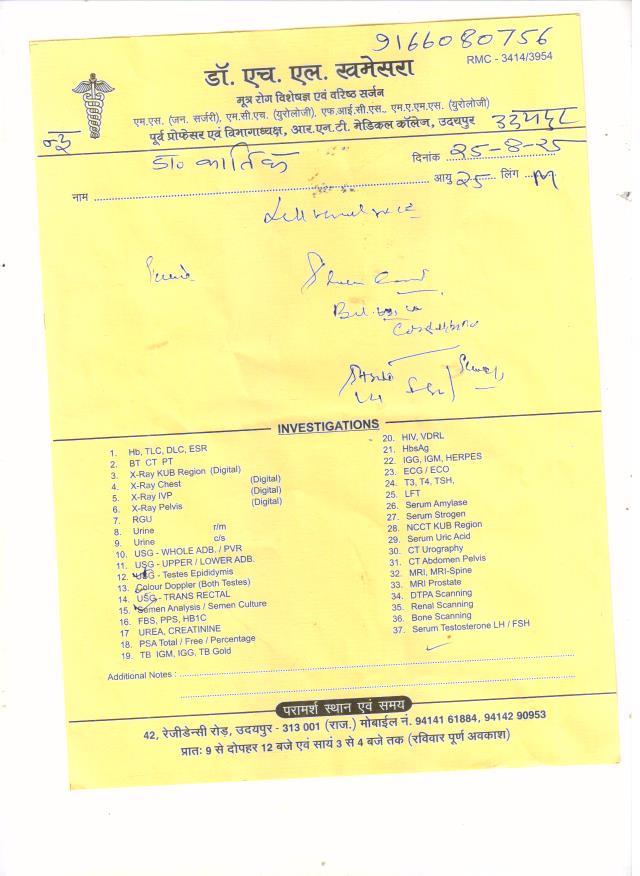 9166080756
RMC - 3414/3954
डॉ. एच. एल. खमेसरा
मूत्र रोग विशेषज्ञ एवं वरिष्ठ सर्जन
एम.एस. (जन. सर्जरी), एम.सी.एच. (यूरोलोजी), एफ.आई.सी.एस., एम.ए.एम.एस. (यूरोलोजी)
पूर्व प्रोफेसर एवं विभागाध्यक्ष, आर.एन.टी. मेडिकल कॉलेज, उदयपुर
उदयपुर
डा० कार्तिक
दिनांक 25-8-25
नाम
आयु 25 लिंग M
INVESTIGATIONS
1. Hb, TLC, DLC, ESR
2. BT CT PT
3. X-Ray KUB Region (Digital)
4. X-Ray Chest (Digital)
5. X-Ray IVP (Digital)
6. X-Ray Pelvis (Digital)
7. RGU
8. Urine r/m
9. Urine c/s
10. USG - WHOLE ADB. / PVR
11. USG - UPPER / LOWER ADB.
12. USG - Testes Epididymis
13. Colour Doppler (Both Testes)
14. USG - TRANS RECTAL
15. Semen Analysis / Semen Culture
16. FBS, PPS, HB1C
17 UREA, CREATININE
18. PSA Total / Free / Percentage
19. TB IGM, IGG, TB Gold
20. HIV, VDRL
21. HbsAg
22. IGG, IGM, HERPES
23. ECG / ECO
24. T3, T4, TSH,
25. LFT
26. Serum Amylase
27. Serum Strogen
28. NCCT KUB Region
29. Serum Uric Acid
30. CT Urography
31. CT Abdomen Pelvis
32. MRI, MRI-Spine
33. MRI Prostate
34. DTPA Scanning
35. Renal Scanning
36. Bone Scanning
37. Serum Testosterone LH / FSH
Additional Notes :
परामर्श स्थान एवं समय
42, रेजीडेन्सी रोड़, उदयपुर - 313 001 (राज.) मोबाईल नं. 94141 61884, 94142 90953
प्रातः 9 से दोपहर 12 बजे एवं सायं 3 से 4 बजे तक (रविवार पूर्ण अवकाश)